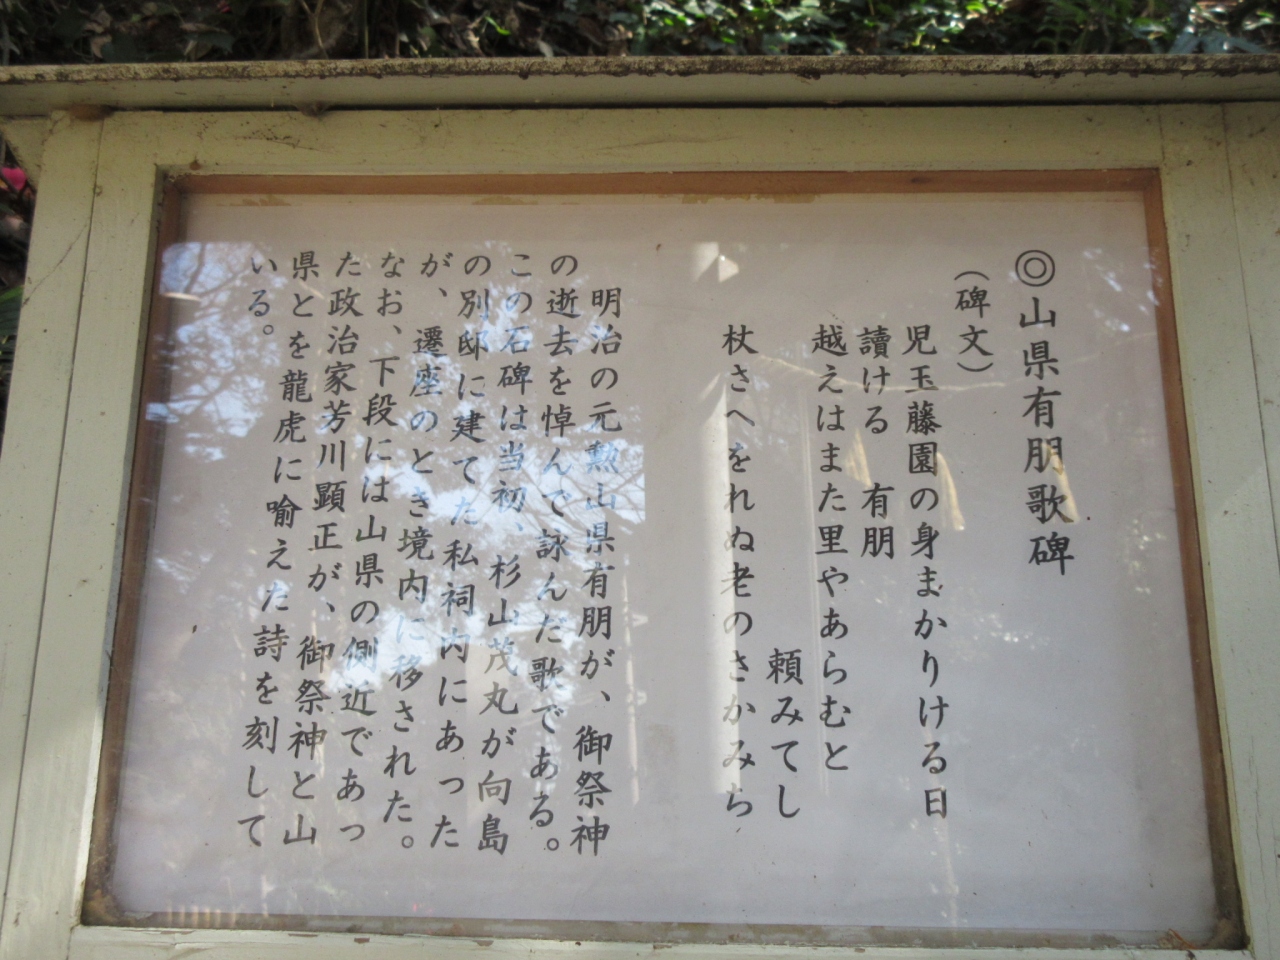 ◎山県有朋歌碑
（碑文）
児玉藤園の身まかりける日
讀ける　有朋
越えはまた里やあらむと
頼みてし
杖さへをれぬ老のさかみち
明治の元勲山県有朋が、御祭神
の逝去を悼んで詠んだ歌である。
この石碑は当初、杉山茂丸が向島
の別邸に建てた私祠内にあった
が、遷座のとき境内に移された。
なお、下段には山県の側近であっ
た政治家芳川顕正が、御祭神と山
県とを龍虎に喻えた詩を刻して
いる。